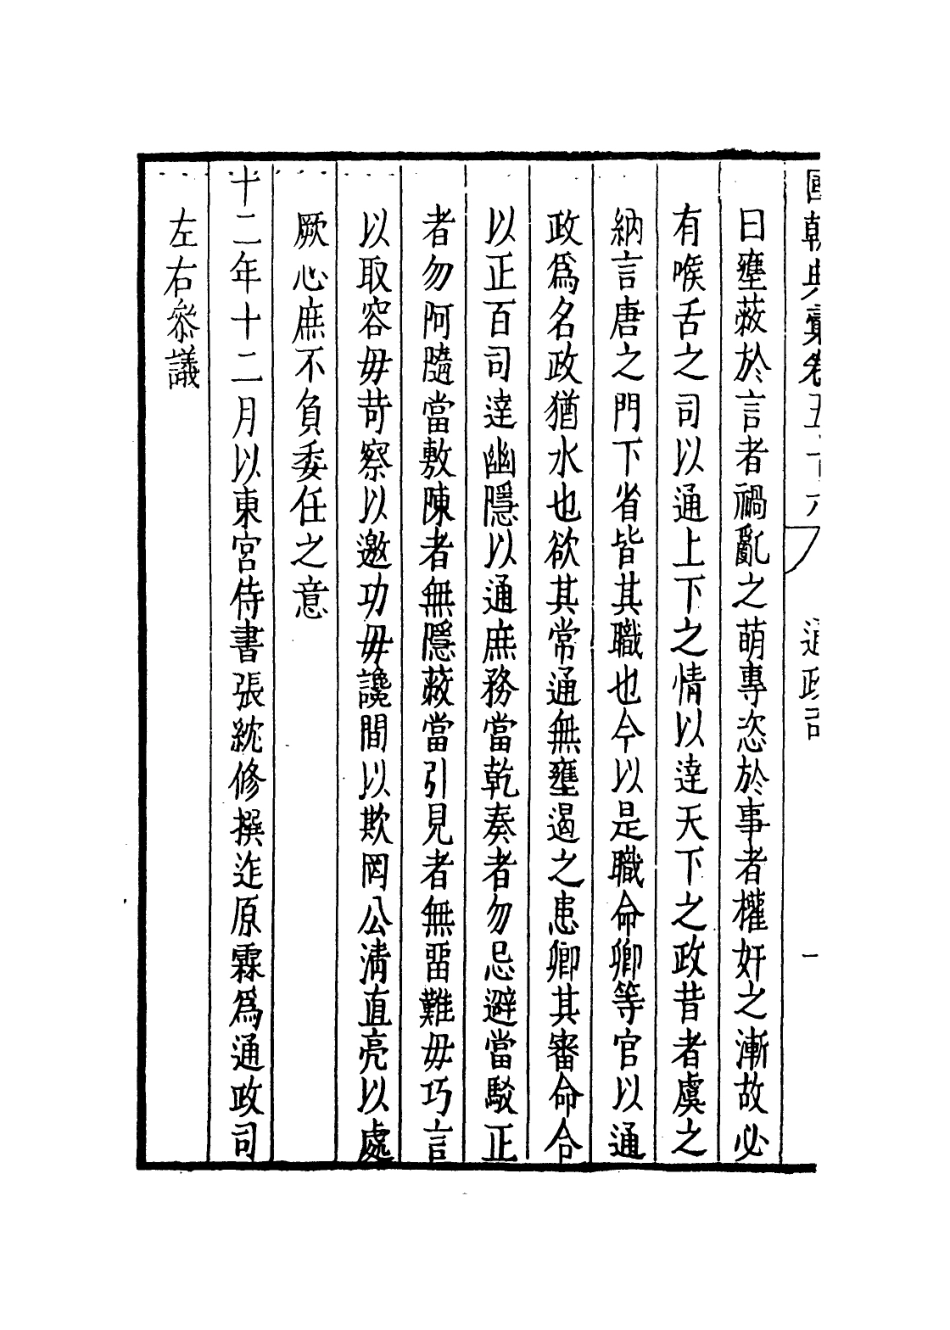 國朝典彙卷五十六 通政司 一
曰壅蔽於言者禍亂之萌專恣於事者權奸之漸故必
有喉舌之司以通上下之情以達天下之政昔者虞之
納言唐之門下省皆其職也今以是職命卿等官以通
政爲名政猶水也欲其常通無壅遏之患卿其審命合
以正百司達幽隱以通庶務當乾奏者勿忌避當駁正
者勿阿隨當敷陳者無隱蔽當引見者無畱難毋巧言
以取容毋苛察以邀功毋讒間以欺罔公清直亮以處
厥心庶不負委任之意
十二年十二月以東宮侍書張紞修撰迮原霖爲通政司
左右叅議